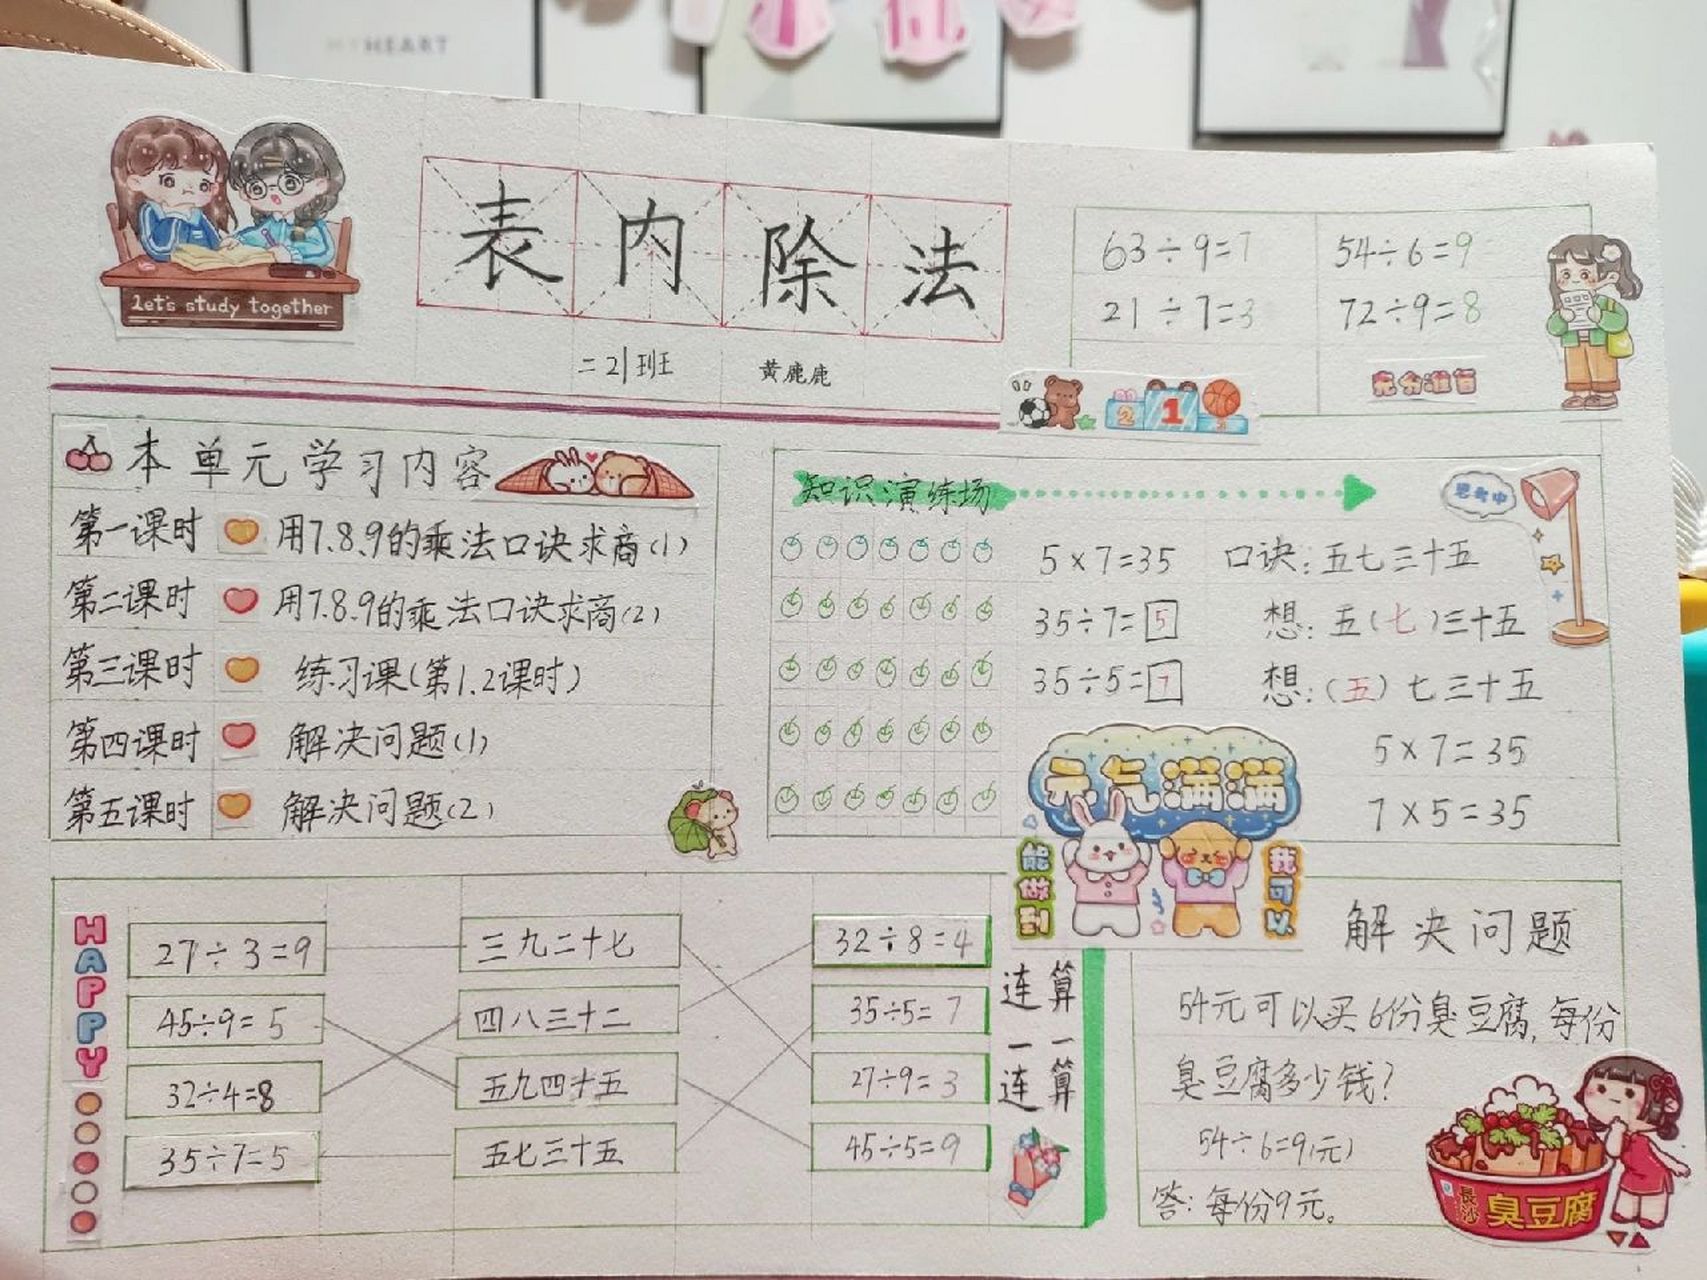 MY HEART
let's study together
表内除法
二21班 黄鹿鹿
63÷9=7 54÷6=9
21÷7=3 72÷9=8
充分准备
2 1 3
本单元学习内容
第一课时 用7.8.9的乘法口诀求商(1)
第二课时 用7.8.9的乘法口诀求商(2)
第三课时 练习课(第1.2课时)
第四课时 解决问题(1)
第五课时 解决问题(2)
知识演练场
思考中
5×7=35 口诀:五七三十五
35÷7=5 想:五(七)三十五
35÷5=7 想:(五)七三十五
5×7=35
7×5=35
元气满满
能做到
我可以
HAPPY
27÷3=9 三九二十七 32÷8=4
45÷9=5 四八三十二 35÷5=7
32÷4=8 五九四十五 27÷9=3
35÷7=5 五七三十五 45÷5=9
连一连
算一算
解决问题
54元可以买6份臭豆腐,每份
臭豆腐多少钱?
54÷6=9(元)
答:每份9元。
長沙
臭豆腐